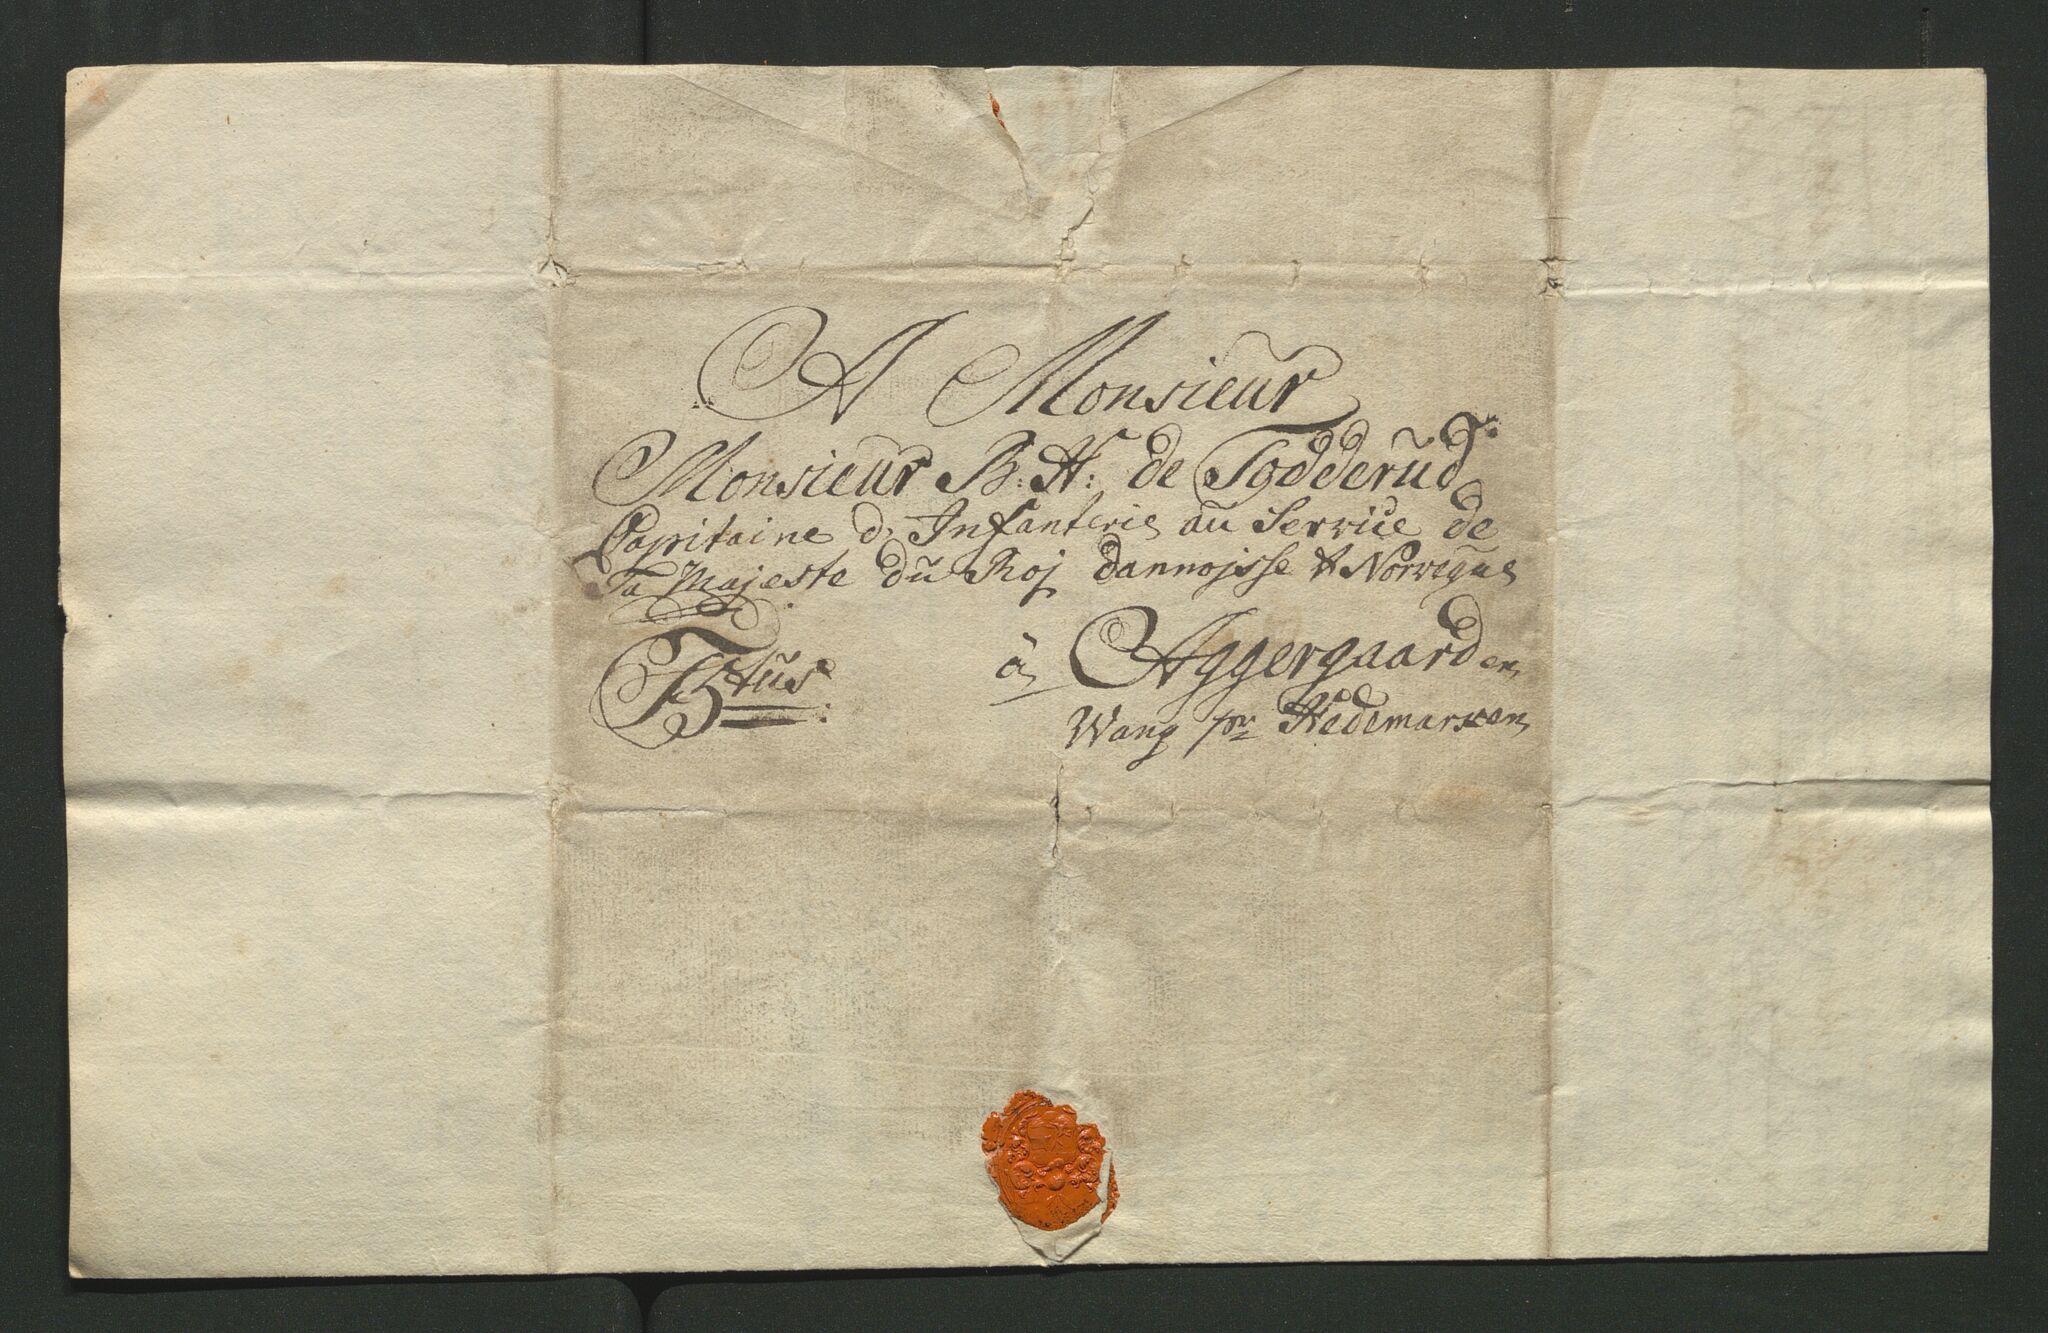 A Monsieur
Monsieur B: H: de Todderud
Capitaine d, Infanterie au Service de
Sa Majeste du Roj dannojsse & Norwegue
à Aggergaarden
Wang pr Hedemarken